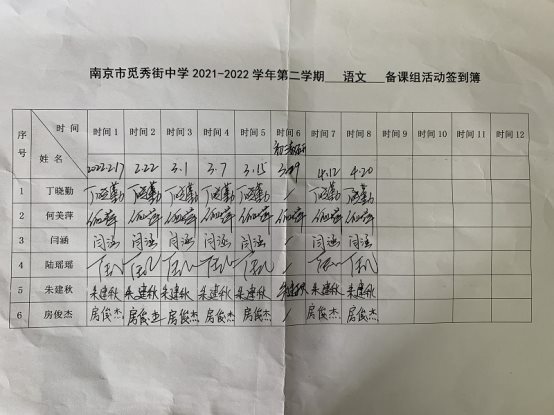 南京市觅秀街中学 2021-2022 学年第二学期 语文 备课组活动签到簿
序号 时间 姓名 时间 1 时间 2 时间 3 时间 4 时间 5 时间 6 时间 7 时间 8 时间 9 时间 10 时间 11 时间 12
2022.2.17 2.22 3.1 3.7 3.15 4.12 4.20
1 丁晓勤 丁晓勤 丁晓勤 丁晓勤 丁晓勤 丁晓勤 / 丁晓勤 丁晓勤
2 何美萍 何美萍 何美萍 何美萍 何美萍 何美萍 何美萍 何美萍 何美萍
3 闫涵 闫涵 闫涵 闫涵 闫涵 闫涵 / 闫涵 闫涵
4 陆瑶瑶 /
5 朱建秋 朱建秋 朱建秋 朱建秋 朱建秋 朱建秋 朱建秋 朱建秋 朱建秋
6 房俊杰 房俊杰 房俊杰 房俊杰 房俊杰 房俊杰 / 房俊杰 房俊杰